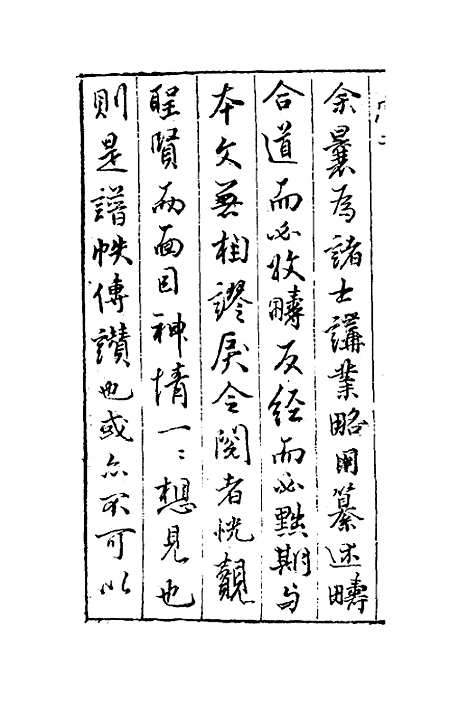 余曩為諸士講業略用纂述疇
合道而必收疇反經而必黜期与
本文無相謬戾令閱者恍覿
聖賢而面目神情一〻想見也
則是譜帙傳讚也或亦不可以